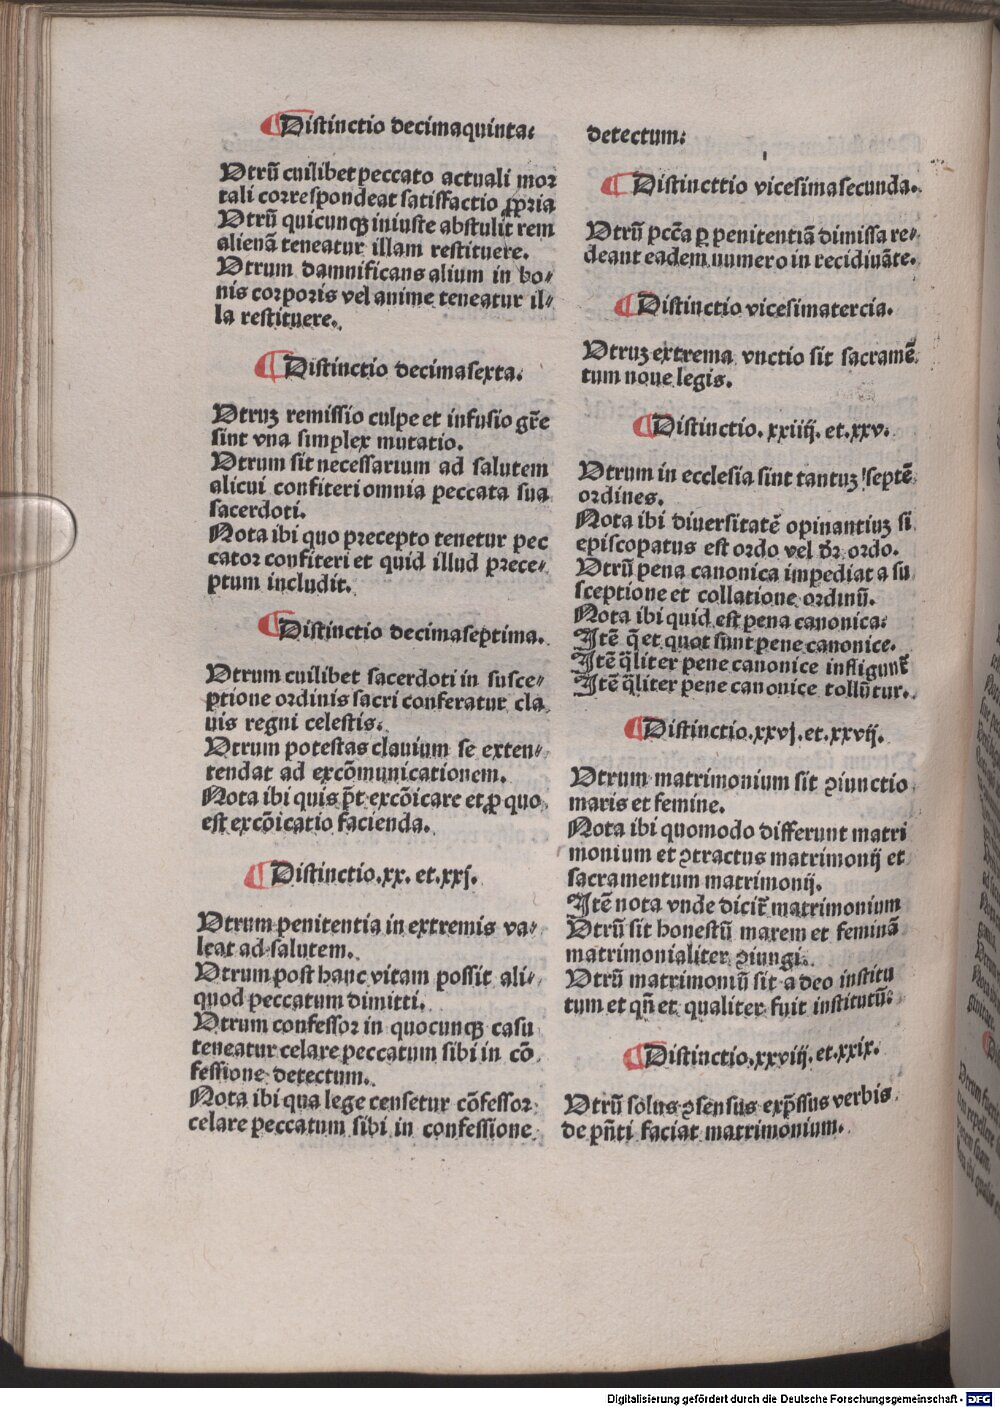 Distinctio decimaquinta:
Vtrū cuilibet peccato actuali mor
tali correspondeat satisfactio ꝓpria
Vtrū quicunqꝫ iniuste abstulit rem
alienā teneatur illam restituere.
Vtrum damnificans alium in bo⸗
nis corporis vel anime teneatur il⸗
la restituere.
Distinctio decimasexta.
Vtruꝫ remissio culpe et infusio gr̄e
sint vna simplex mutatio.
Vtrum sit necessarium ad salutem
alicui confiteri omnia peccata sua
sacerdoti.
Nota ibi quo precepto tenetur pec
cator confiteri et quid illud prece⸗
ptum includit.
Distinctio decimaseptima.
Vtrum cuilibet sacerdoti in susce⸗
ptione ordinis sacri conferatur cla
uis regni celestis.
Vtrum potestas clauium se exten⸗
tendat ad excōmunicationem.
Nota ibi quis pt̄ excōicare et ꝓ quo
est excōicatio facienda.
Distinctio.xx. et.xxj.
Vtrum penitentia in extremis va⸗
leat ad salutem.
Vtrum post hanc vitam possit ali⸗
quod peccatum dimitti.
Vtrum confessor in quocunqꝫ casu
teneatur celare peccatum sibi in cō
fessione detectum.
Nota ibi qua lege censetur cōfessor
celare peccatum sibi in confessione
detectum:
Distincttio vicesimasecunda.
Vtrū pcc̄a ꝑ penitentiā dimissa re⸗
deant eadem numero in recidiuāte.
Distinctio vicesimatercia.
Vtruꝫ extrema vnctio sit sacramē
tum noue legis.
Distinctio.xxiiij. et.xxv.
Vtrum in ecclesia sint tantuꝫ septē
ordines.
Nota ibi diuersitatē opinantiuꝫ si
episcopatus est ordo vel dr̄ ordo.
Vtrū pena canonica impediat a su
sceptione et collatione ordinū.
Nota ibi quid est pena canonica:
Itē q̄ et quot sunt pene canonice.
Itē q̄liter pene canonice infligunt̄
Itē q̄liter pene canonice tollūtur.
Distinctio.xxvj.et.xxvij.
Vtrum matrimonium sit ꝯiunctio
maris et femine.
Nota ibi quomodo differunt matri
monium et ꝯtractus matrimonij et
sacramentum matrimonij.
Itē nota vnde dicit̄ matrimonium
Vtrū sit honestū marem et feminā
matrimonialiter ꝯiungi.
Vtrū matrimoniū sit a deo institu
tum et qn̄ et qualiter fuit institutū:
Distinctio.xxviij.et.xxix.
Vtrū solus ꝯsensus exp̄ssus verbis
de pn̄ti faciat matrimonium.
Digitalisierung gefördert durch die Deutsche Forschungsgemeinschaft - DFG